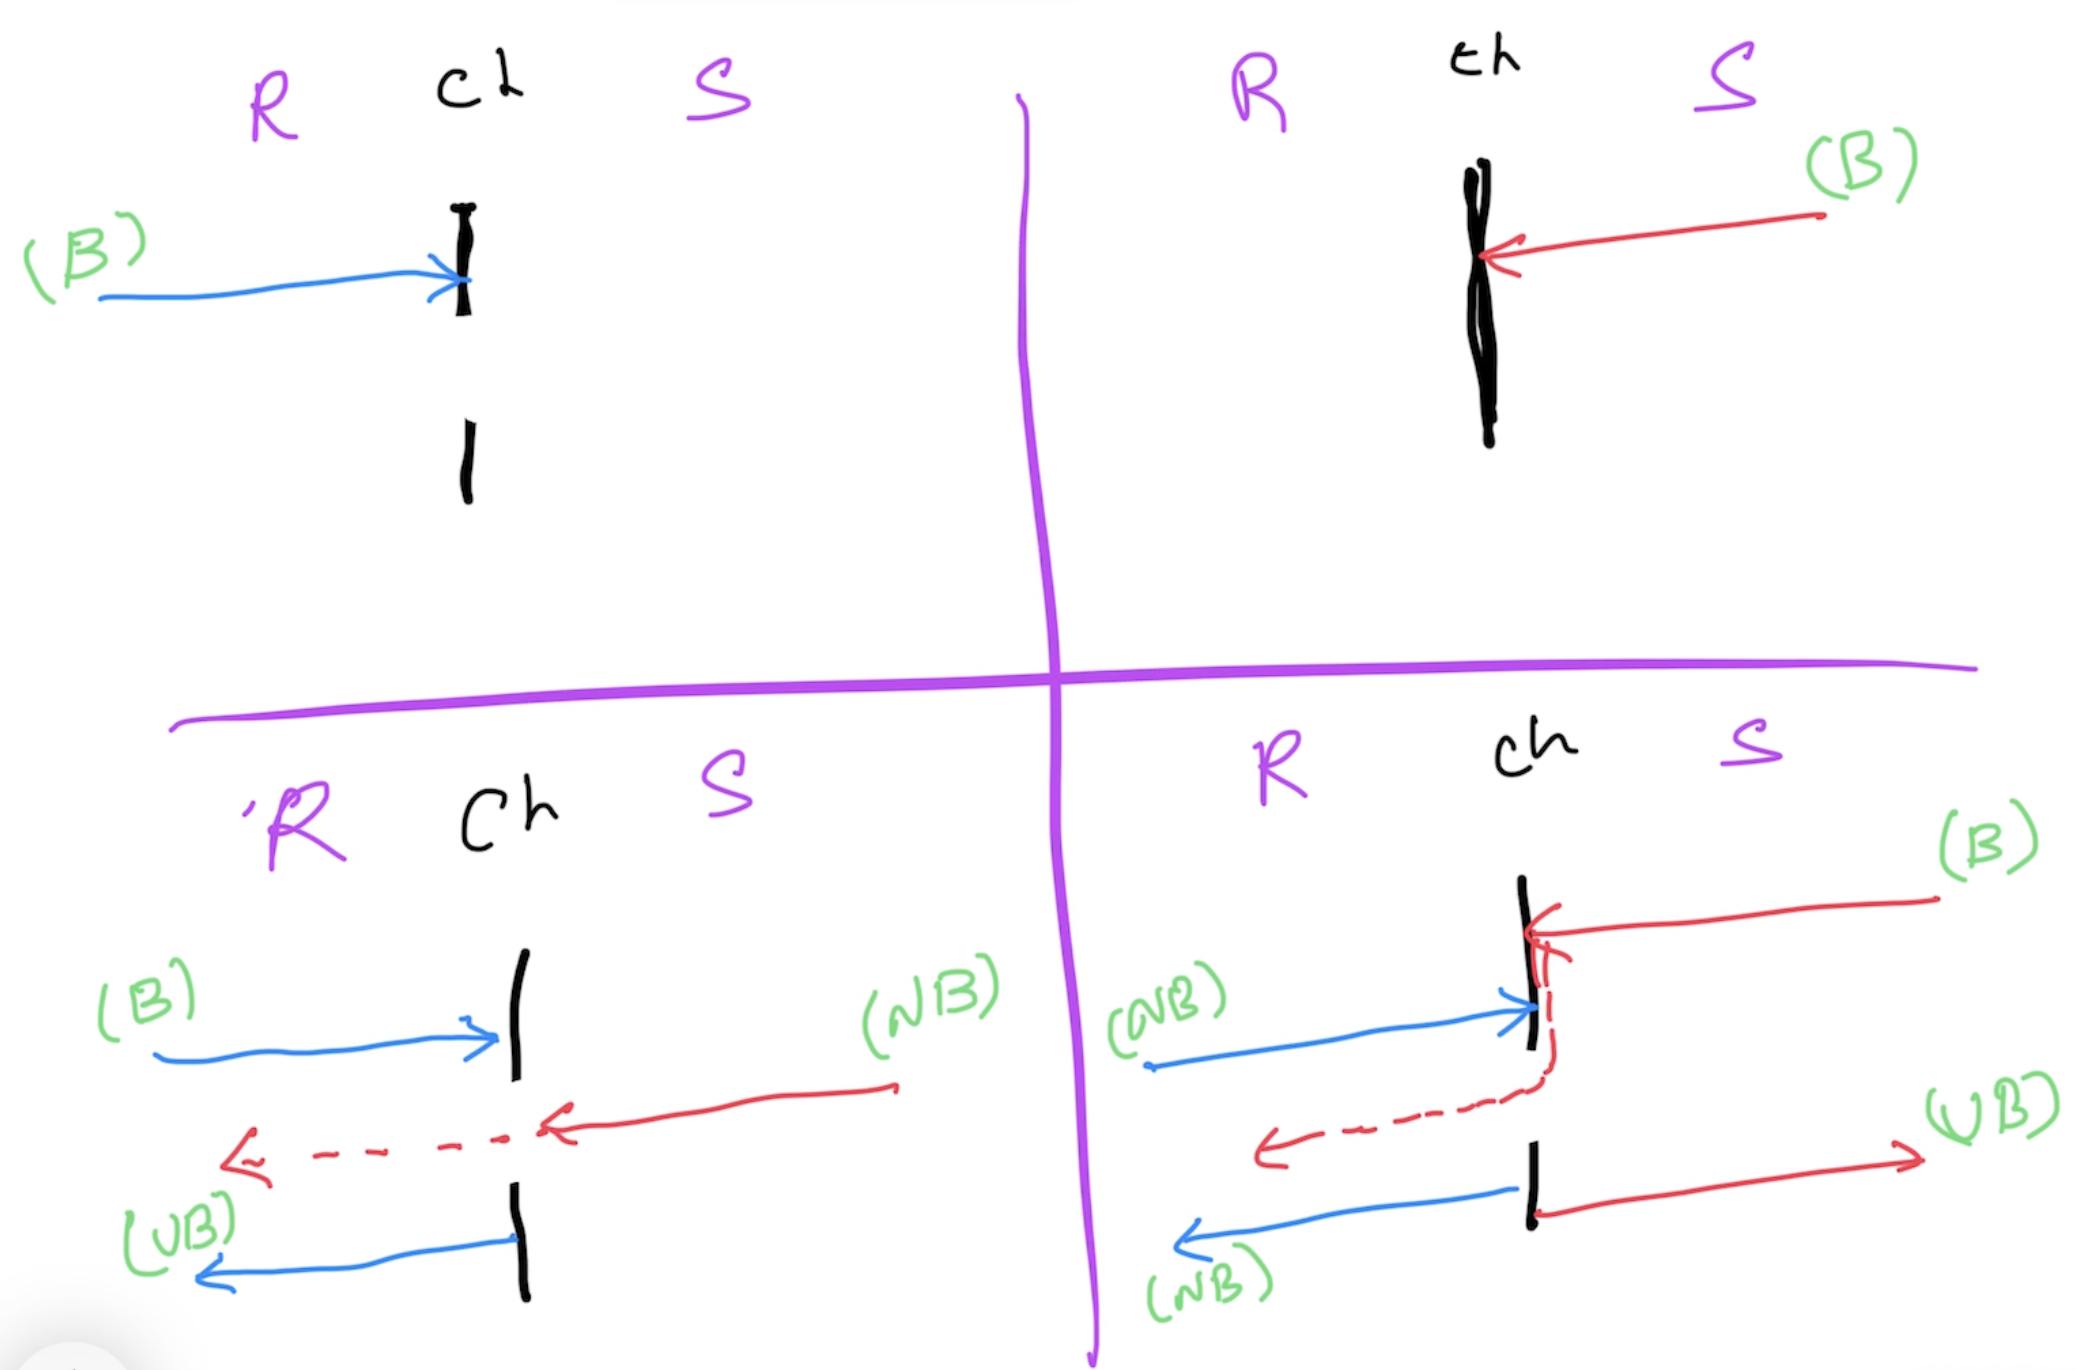 R ch S
(B)
R ch S
(B)
R Ch S
(B) (NB)
(UB)
R ch S
(B)
(NB)
(UB)
(NB)